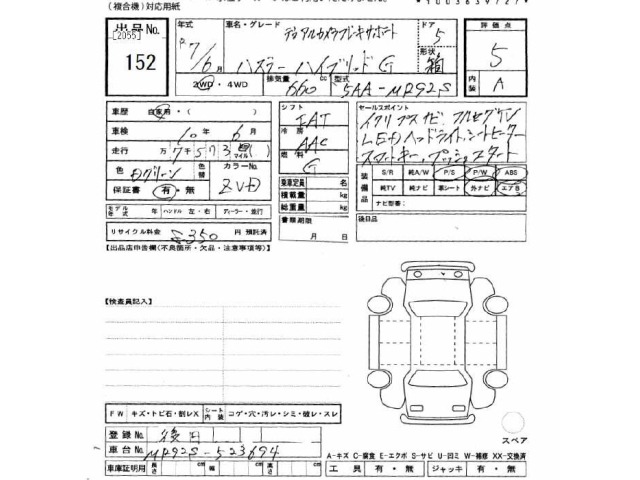 (複合機)対応用紙
出品No. [2055] 152
年式 R7/6月
車名・グレード デュアルカメラブレーキサポート
ハスラー ハイブリッド G
ドア 5
形状 箱
評価点 5
内装 A
2WD・4WD
排気量 660 cc
型式 5AA-MR92S
車歴 自家用・( )
車検 10年 6月
走行 万 7千 5 7 3 (マイル)
色 Dグリーン
色替
カラーNo. ZVD
保証書 有・無
モデル年式 年 ハンドル 左・右 ディーラー・並行
リサイクル料金 円 預託済
シフト FAT
冷房 AAC
燃料 G
乗車定員 名
積載量 kg
総重量 kg
書類期限 月 日
セールスポイント
イクリプスナビ、フルセグTV
LEDヘッドライト、シートヒーター
スマートキー、プッシュスタート
装備品 S/R 純A/W P/S P/W ABS
純TV 純ナビ 革シート 外ナビ エアB
ナビ型番( )
後日品
【出品店申告欄(不良箇所・欠品・注意事項等)】
【検査員記入】
FW キズ・トビ石・割レX シート内装 コゲ・穴・汚レ・シミ・破レ・スレ
登録No. 後日
車台No. MR92S-523694
車庫証明用 長さ cm 幅 cm 高さ cm
スペア
A-キズ C-腐食 E-エクボ S-サビ U-凹ミ W-補修 XX-交換済
工具 有・無 ジャッキ 有・無